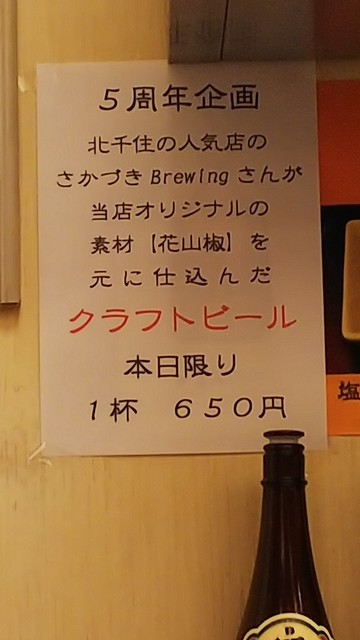 ５周年企画
北千住の人気店の
さかづきBrewingさんが
当店オリジナルの
素材【花山椒】を
元に仕込んだ
クラフトビール
本日限り
１杯　６５０円
塩